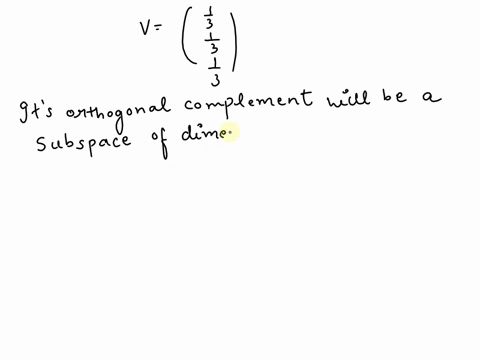 V = ( 1/3
1/3
1/3 )
It's orthogonal complement will be a
Subspace of dime